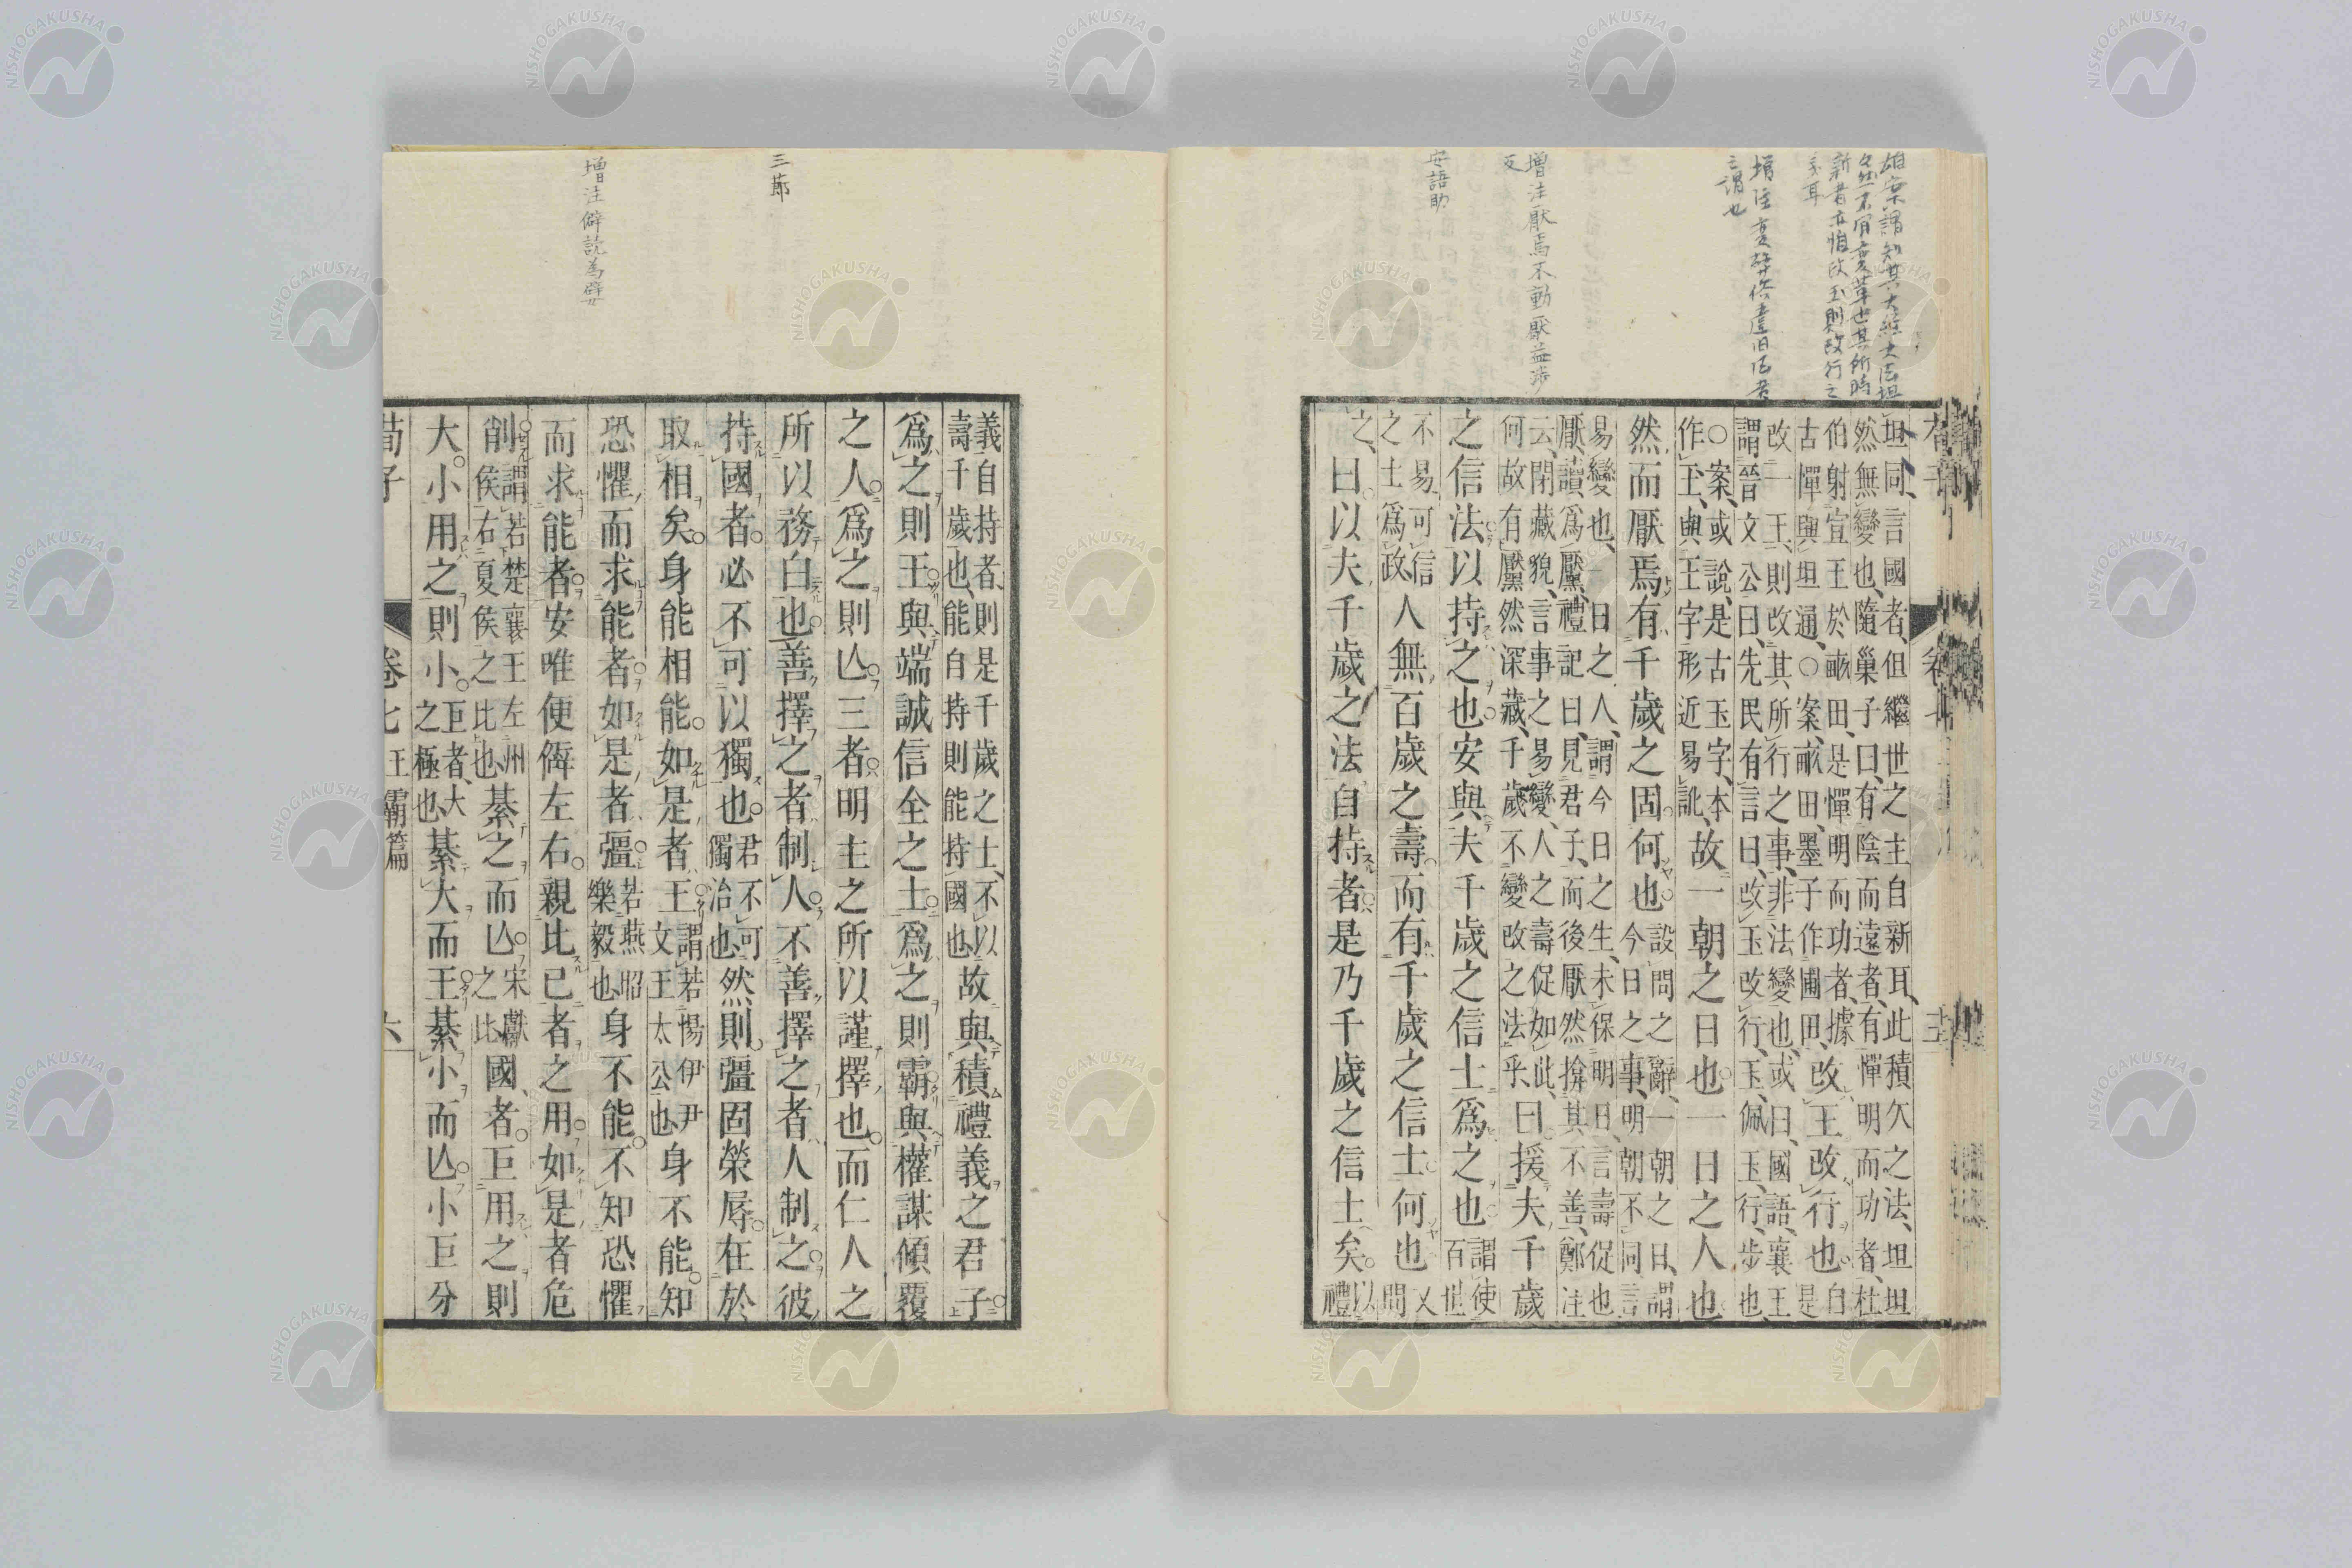 新者亦惟改玉則改行之
之謂也
増注厭焉不動厭益渉
反
安語助
坦同、言國者、但繼世之主自新耳、此積久之法、坦坦
然無變也、隨巢子曰、有陰而遠者、有憚明而功者、杜
伯射宣王於畝田、是憚明而功者、據
古憚與坦通、○案、畝田、墨子作圃田、
改王改行也
自
是
改一王、則改其所行之事、非法變也、或曰、國語、襄王
謂晉文公曰、先民有言曰、改玉改行、玉、佩玉、行、步也
○案、或說、是古玉字、本
作王、與王字形近易訛、
故一朝之日也一日之人也
然而厭焉有千歲之固何也
設問之辭、一朝之日、謂
今日之事、明朝不同言
易變也、一日之人、謂今日之生、未保明日、言壽促也
厭讀爲黶、禮記曰、見君子、而後厭然揜其不善、鄭注
云、閉藏貌、言事之易變、人之壽促如此、
何故有黶然深藏、千歲不變改之法乎、
曰援夫千歲
之信法以持之也安與夫千歲之信士爲之也
謂使
百世
不易、可信
之士爲政
人無百歲之壽而有千歲之信士何也
又
問
之、曰以夫千歲之法自持者是乃千歲之信士矣
以
禮
三節
増注僻読為嬖
義自持者、則是千歲之士、不以
壽千歲也、能自持則能持國也
故與積禮義之君子
爲之則王與端誠信全之士爲之則霸與權謀傾覆
之人爲之則亾三者明主之所以謹擇也而仁人之
所以務白也善擇之者制人不善擇之者人制之彼
持國者必不可以獨也
君不可
獨治也
然則彊固榮辱在於
取相矣身能相能如是者王
謂若湯伊尹
文王太公也
身不能知
恐懼而求能者如是者彊
若燕昭
樂毅也
身不能不知恐懼
而求能者安唯便僻左右親比已者之用如是者危
削
謂若楚襄王左州
侯右夏侯之比也
綦之而亾
宋獻
之比
國者巨用之則
大小用之則小
巨者、大
之極也
綦大而王綦小而亾小巨分
荀子
卷七
王霸篇
六